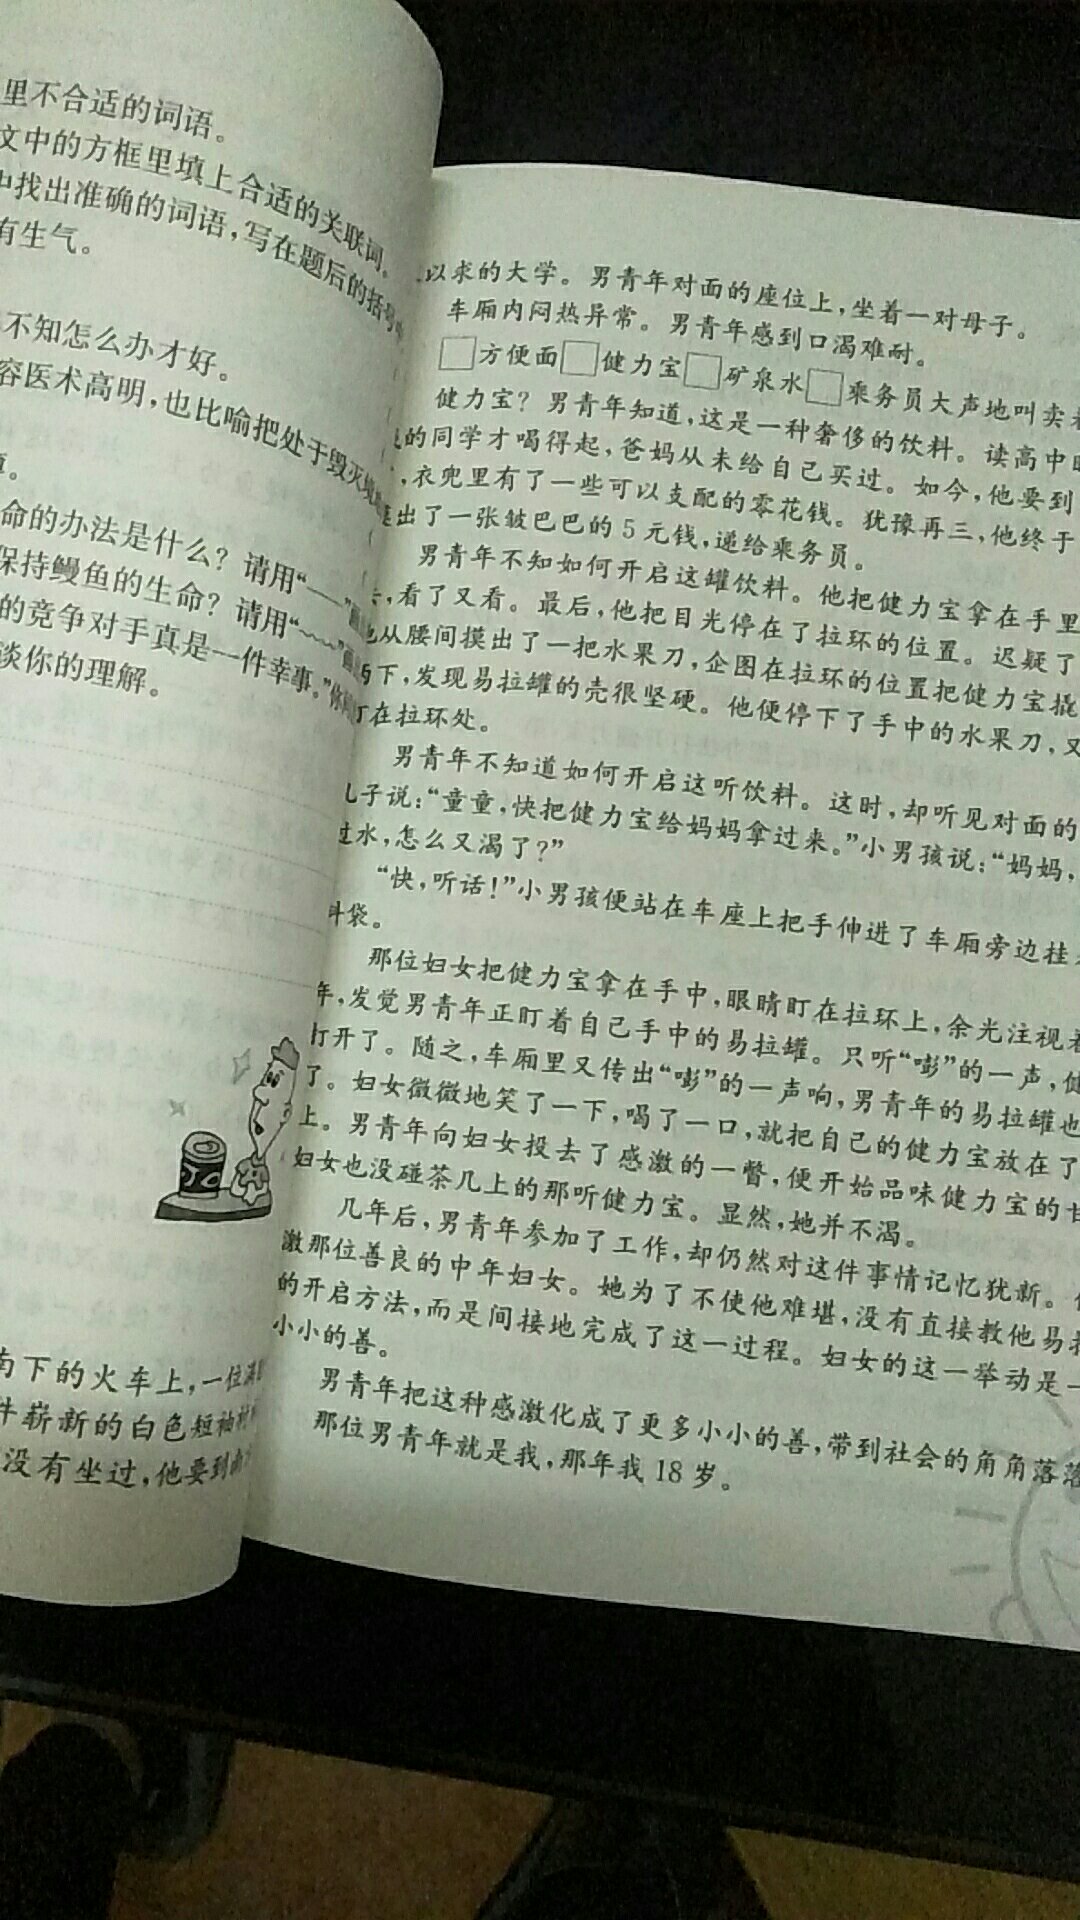 里不合适的词语。
文中的方框里填上合适的关联词。
中找出准确的词语，写在题后的括号
有生气。
不知怎么办才好。
容医术高明，也比喻把处于毁灭
命的办法是什么？请用“——”
保持鳗鱼的生命？请用“﹏﹏”
的竞争对手真是一件幸事。”你
谈你的理解。
南下的火车上，一位满
件崭新的白色短袖衬
没有坐过，他要到
以求的大学。男青年对面的座位上，坐着一对母子。
车厢内闷热异常。男青年感到口渴难耐。
□方便面□健力宝□矿泉水□乘务员大声地叫卖着
健力宝？男青年知道，这是一种奢侈的饮料。读高中
的同学才喝得起，爸妈从未给自己买过。如今，他要到
，衣兜里有了一些可以支配的零花钱。犹豫再三，他终于
出了一张皱巴巴的5元钱，递给乘务员。
男青年不知如何开启这罐饮料。他把健力宝拿在手里
，看了又看。最后，他把目光停在了拉环的位置。迟疑了
他从腰间摸出了一把水果刀，企图在拉环的位置把健力宝撬
两下，发现易拉罐的壳很坚硬。他便停下了手中的水果刀，又
盯在拉环处。
男青年不知道如何开启这听饮料。这时，却听见对面的
儿子说：“童童，快把健力宝给妈妈拿过来。”小男孩说：“妈妈，
过水，怎么又渴了？”
“快，听话！”小男孩便站在车座上把手伸进了车厢旁边挂
料袋。
那位妇女把健力宝拿在手中，眼睛盯在拉环上，余光注视着
年，发觉男青年正盯着自己手中的易拉罐。只听“嘭”的一声，健
打开了。随之，车厢里又传出“嘭”的一声响，男青年的易拉罐也
了。妇女微微地笑了一下，喝了一口，就把自己的健力宝放在了
上。男青年向妇女投去了感激的一瞥，便开始品味健力宝的甘
妇女也没碰茶几上的那听健力宝。显然，她并不渴。
几年后，男青年参加了工作，却仍然对这件事情记忆犹新。
激那位善良的中年妇女。她为了不使他难堪，没有直接教他易拉
的开启方法，而是间接地完成了这一过程。妇女的这一举动是一
小小的善。
男青年把这种感激化成了更多小小的善，带到社会的角角落落
那位男青年就是我，那年我18岁。